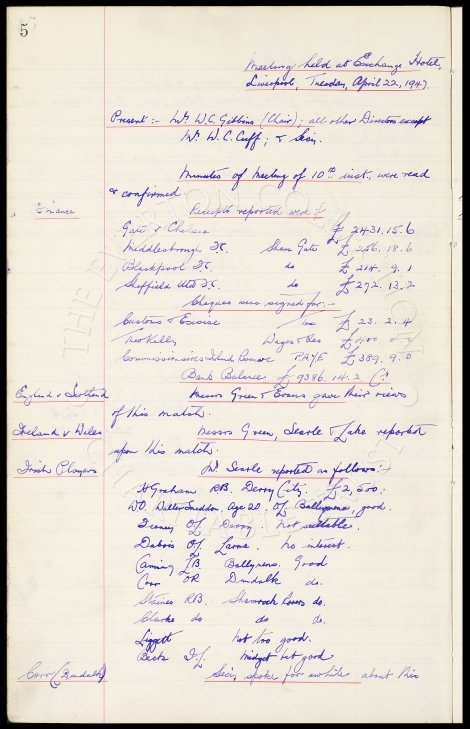 5
Meeting held at Exchange Hotel,
Liverpool, Tuesday, April 22, 1947.
Present :- Mr. W.C. Gibbins (Chair); all other Directors except
Mr. W.C. Cuff; & Secy.
Minutes of Meeting of 10th inst., were read
& confirmed.
Finance
Receipts reported were :-
Gate v Chelsea £ 2431.15.6
Middlesbrough F.C. Share Gate £ 256.18.6
Blackpool F.C. do £ 214. 9. 1
Sheffield Utd F.C. do £ 292. 13. 2
Cheques were signed for :-
Customs & Excise Tax £ 23. 2. 4
Theo Kelly Wages & £ 400. 0. 0
Commissioners Inland Revenue P.A.Y.E £ 389. 9. 0
Bank Balance £ 9386. 14. 2. Cr
England v Scotland
Messrs Green & Evans gave their views
of this match.
Ireland v Wales
Messrs Green, Searle & Lake reported
upon this match.
Irish Players
Mr. Searle reported as follows :-
Graham RB. Derry City. £2,500.
Age 20. O/L Ballymena, good.
Feeney O/L Derry. Not suitable.
O/L Larne. No interest.
LB Ballymena. Good
Corr OR Dundalk do.
RB. Shamrock Rovers do.
Clarke do do do.
Liggett Not too good.
I/L. Midget not good
Corr (Dundalk)
Secy. spoke for awhile about this